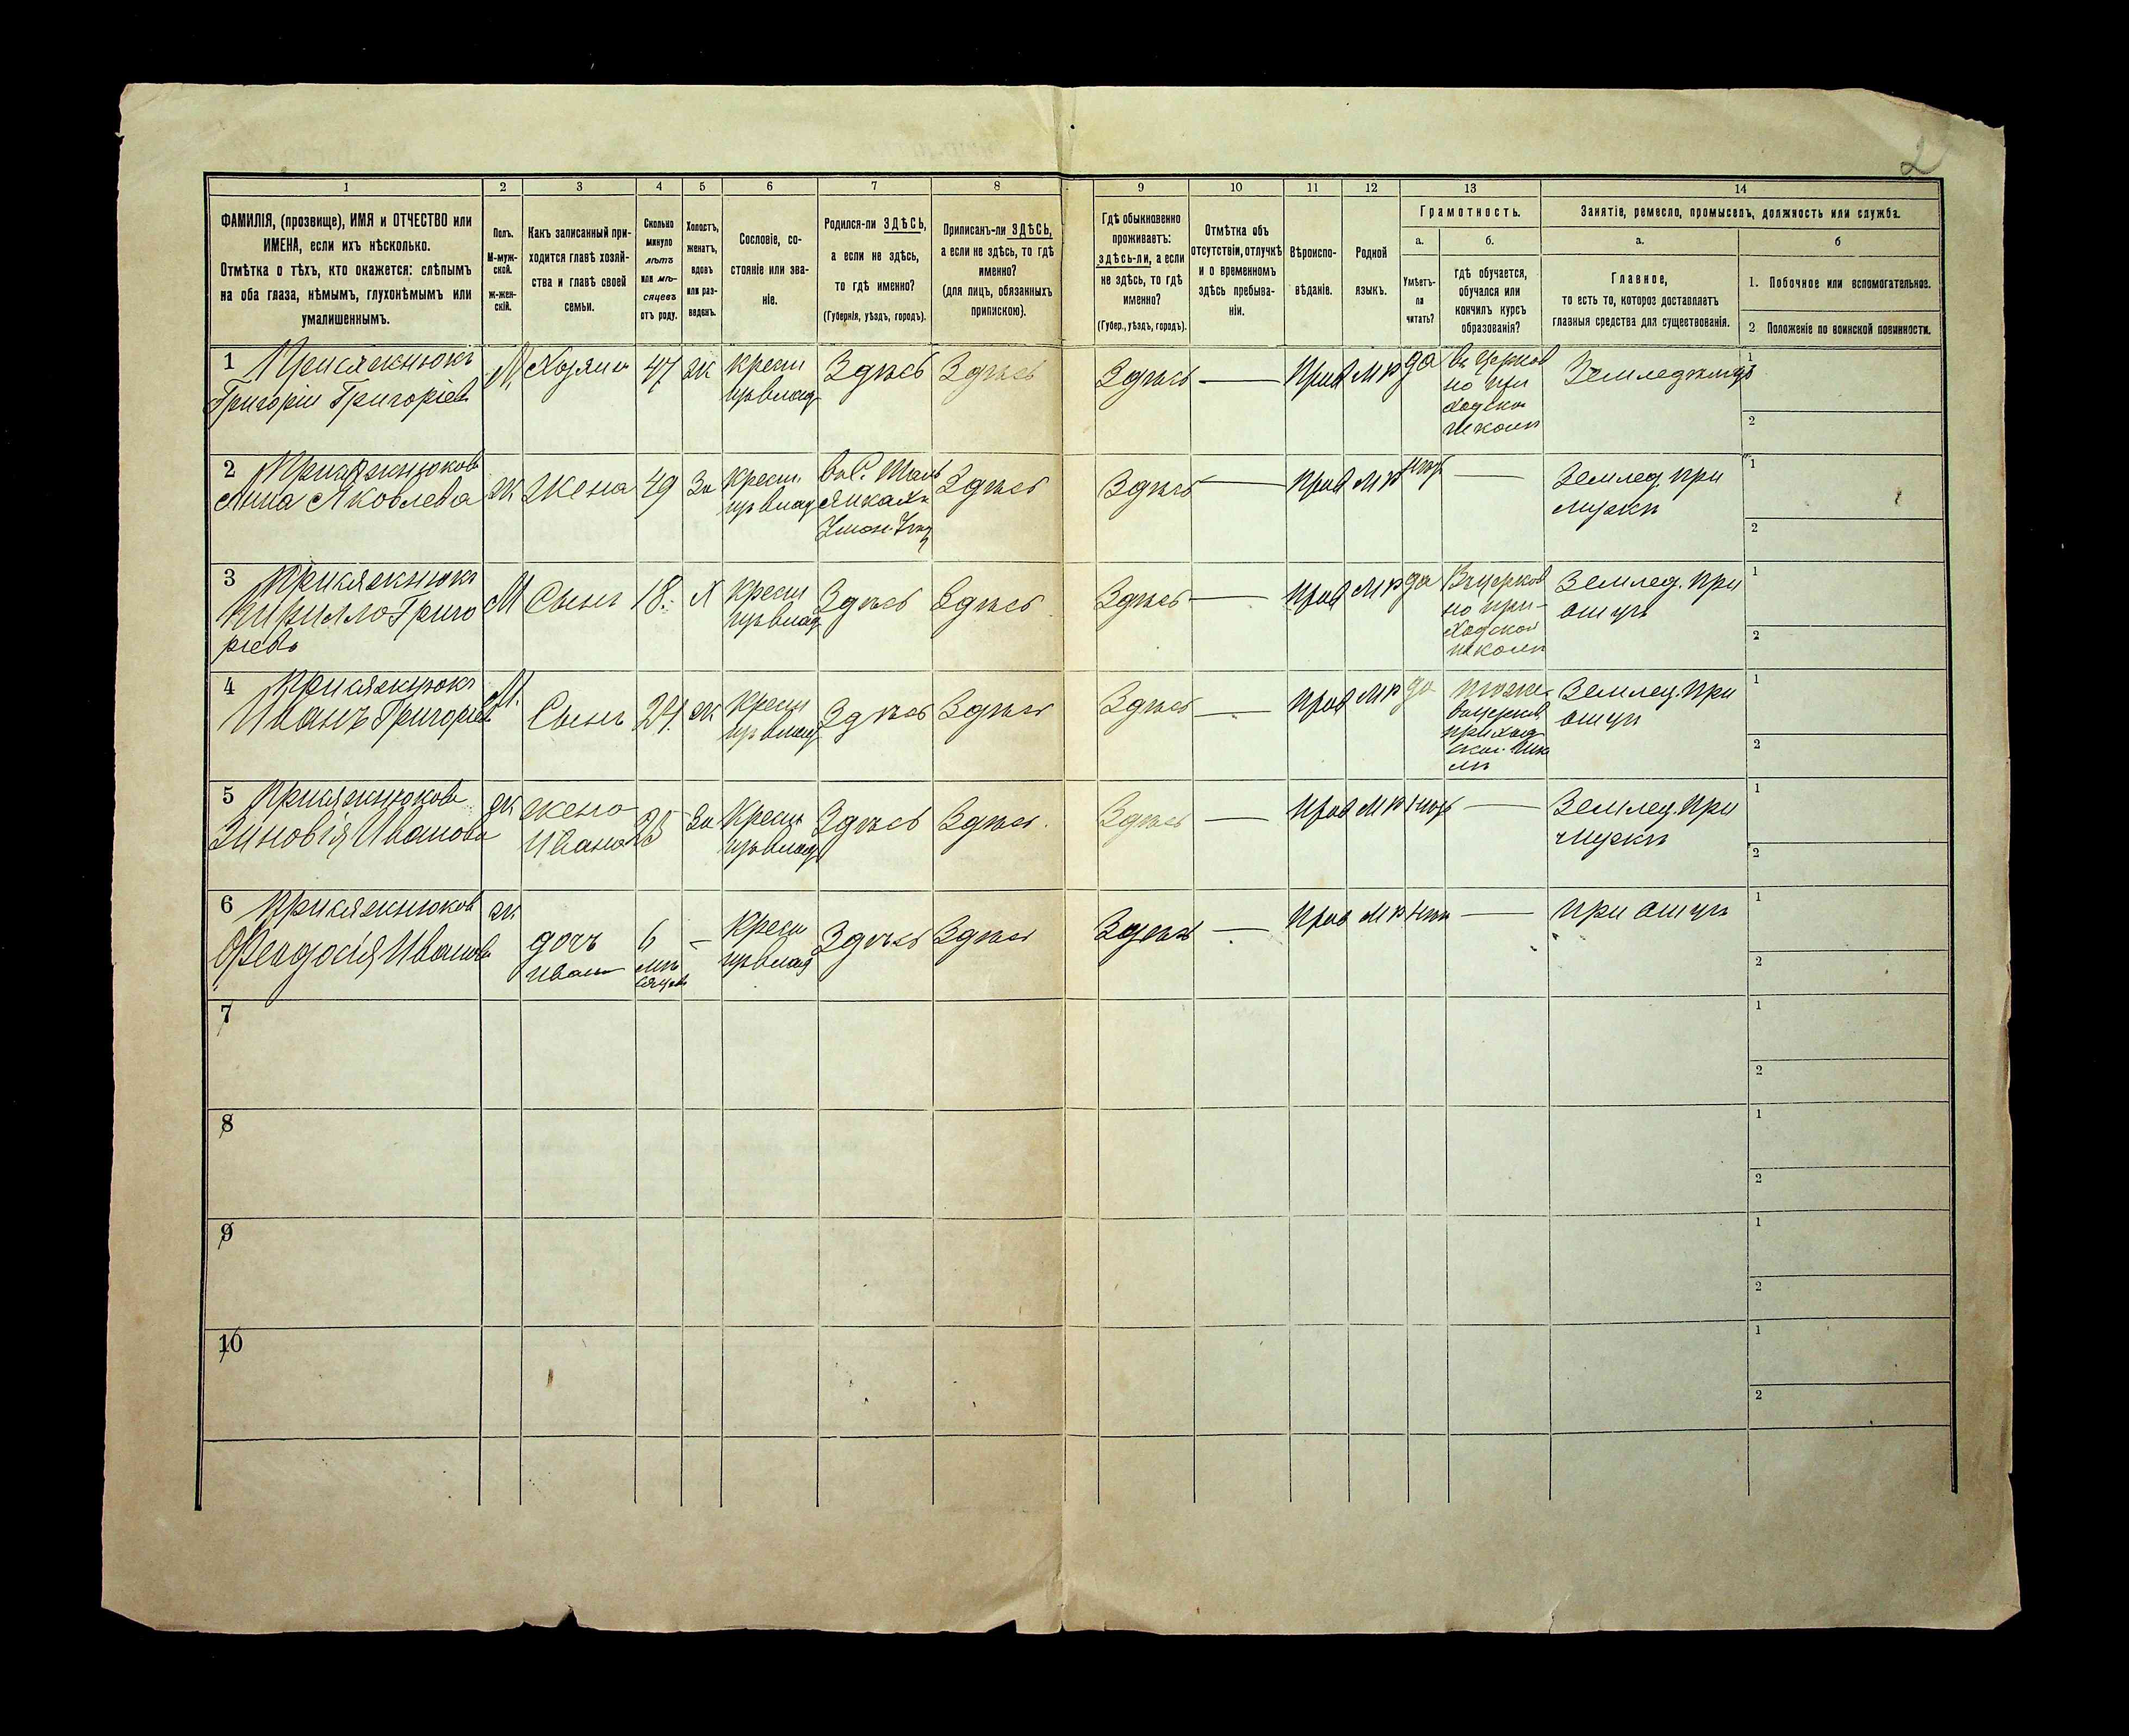 2
1 2 3 4 5 6 7 8 9 10 11 12 13 14
ФАМИЛІЯ, (прозвище), ИМЯ и ОТЧЕСТВО или
ИМЕНА, если ихъ нѣсколько.
Отмѣтка о тѣхъ, кто окажется: слѣпымъ
на оба глаза, нѣмымъ, глухонѣмымъ или
умалишеннымъ.
Полъ.
М-муж-
ской.
Ж-жен-
скій.
Какъ записанный при-
ходится главѣ хозяй-
ства и главѣ своей
семьи.
Сколько
минуло
лѣтъ
или мѣ-
сяцевъ
отъ роду.
Холостъ,
женатъ,
вдовъ
или раз-
веденъ.
Сословіе, со-
стояніе или зва-
ніе.
Родился-ли ЗДѢСЬ,
а если не здѣсь,
то гдѣ именно?
(Губернія, уѣздъ, городъ).
Приписанъ-ли ЗДѢСЬ,
а если не здѣсь, то гдѣ
именно?
(для лицъ, обязанныхъ
припискою).
Гдѣ обыкновенно
проживаетъ:
здѣсь-ли, а если
не здѣсь, то гдѣ
именно?
(Губер., уѣздъ, городъ).
Отмѣтка объ
отсутствіи, отлучкѣ
и о временномъ
здѣсь пребыва-
ніи.
Вѣроиспо-
вѣданіе.
Родной
языкъ.
Грамотность.
а.
Умѣетъ-
ли
читать?
б.
гдѣ обучается,
обучался или
кончилъ курсъ
образованія?
Занятіе, ремесло, промыселъ, должность или служба.
а.
Главное,
то есть то, которое доставляетъ
главныя средства для существованія.
б
1. Побочное или вспомогательное.
2 Положеніе по воинской повинности.
1 Присяжнюкъ
Григорій Григоріев
М
Хозяин
47
ж
крестн
изъ влад
Здѣсь
Здѣсь
Здѣсь —
Прав
М р
да
въ церков
но при
ходской
школѣ
Земледѣлецъ
1
2
2 Присяжнюкова
Анна Яковлева
ж
Жена
49
За
Крестн.
изъ влад
Въ С.
Уман. Уѣзд
Здѣсь
Здѣсь —
Прав
М р
—
Землед. при
мужѣ
1
2
3 Присяжнюкъ
Кирилло Григо
ріевъ
М
Сынъ
18.
Х
Крестн
изъ влад
Здѣсь
Здѣсь
Здѣсь —
Прав
М р
да
Въ церков
но при-
ходской
школѣ
Землед. при
отцѣ
1
2
4 Присяжнюкъ
Иванъ Григоріев
М.
Сынъ
24.
ж
Крестн
изъ влад
Здѣсь
Здѣсь
Здѣсь —
Прав
М р
да
тоже
въ церков.
приход
ской. шко
лѣ
Землед. при
отцѣ
1
2
5 Присяжнюкова
Зиновія Иванова
ж
жена
Ивана
За
Крестн
изъ влад
Здѣсь
Здѣсь.
Здѣсь —
Прав
М р
—
Землед. при
мужѣ
1
2
6 Присяжнюков
Феодосія Иванова
ж
дочь
Ивана
6
мѣ
сяцев
–
Крестн
изъ влад
Здѣсь
Здѣсь
Здѣсь —
Прав
М р
нѣт
—
при отцѣ
1
2
7
1
2
8
1
2
9
1
2
10
1
2